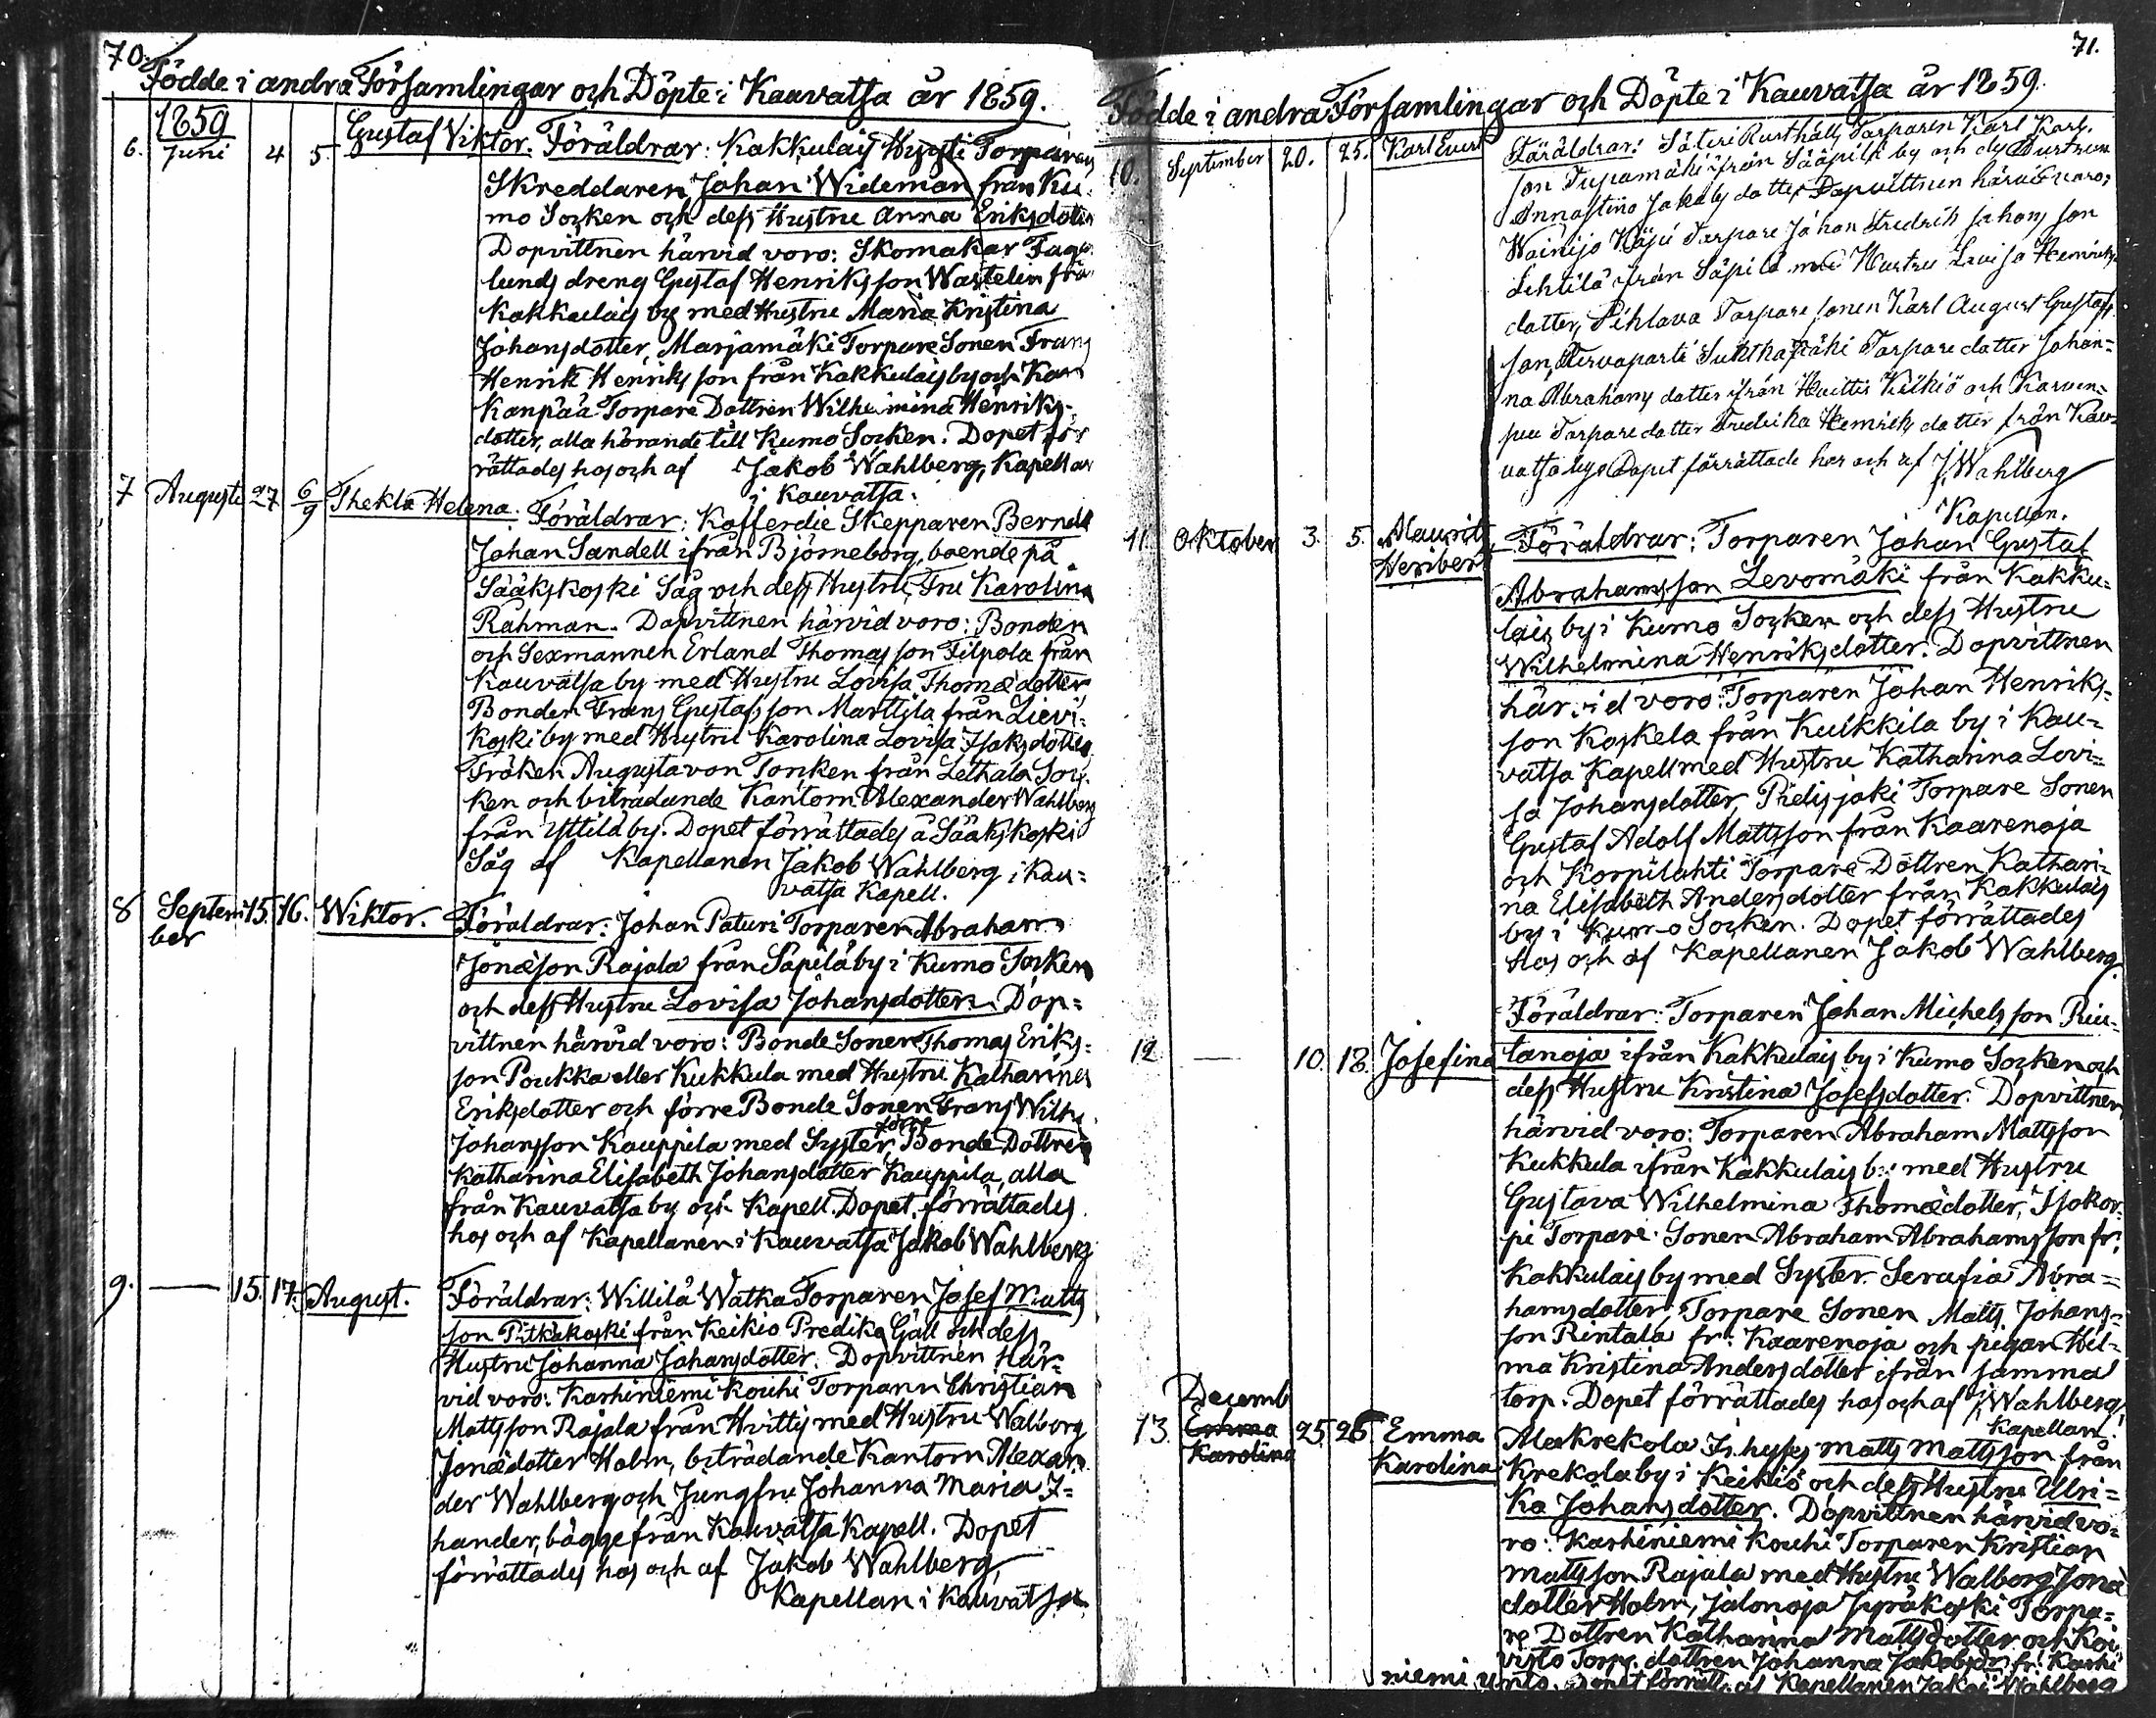 70.
Födde i andra Församlingar och Döpte i Kauvatsa år 1859.
1859
6. Juni 4 5. Gustaf Viktor. Föräldrar: Kakkulais Hyysti Torparen
Skreddaren Johan Wideman från Ku-
mo Socken och dess Hustru Anna Eriksdotter
Dopvittnen härvid voro: Skomakar Fager
lunds dreng Gustaf Henriksson Wastelin från
Kakkulais by med Hustru Maria Kristina
Johansdotter, Marjamäki Torpare Sonen Frans
Henrik Henriksson från Kakkulais by och Kar
Kanpää Torpare Dottren Wilhelmina Henriks-
dotter, alla hörande till Kumo Socken. Dopet för
rättades hos och af Jakob Wahlberg, Kapellan
i Kauvatsa.
7 Augusti 27 6/9 Thekla Helena. Föräldrar: Kofferdie Skepparen Berndt
Johan Sandell ifrån Björneborg, boende på
Sääkskoski Såg och dess Hustru, Fru Karolina
Rahman. Dopvittnen härvid voro: Bonden
och Sexmannen Erland Thomasson Filpola från
Kauvatsa by med Hustru Lovisa Thomædotter
Bonden Frans Gustafsson Marttila från Lievi-
koski by med Hustru Karolina Lovisa Isaksdotter
Fröken Augusta von Torcken från Lethala Soc-
ken och biträdande Kantorn Alexander Wahlberg
från Yttilä by. Dopet förrättades å Sääkskoski
Såg af Kapellanen Jakob Wahlberg i Kau-
vatsa Kapell.
8 Septem 15. 16. Wiktor. Föräldrar: Johan Paturi Torparen Abraham
ber
Jonæson Rajala från Säpilä by i Kumo Socken
och dess Hustru Lovisa Johansdotter. Dop-
vittnen härvid voro: Bonde Sonen Thomas Eriks-
son Poukka eller Kukkula med Hustru Katharina
Eriksdotter och förre Bonde Sonen Frans Wilh.
Johansson Kauppila med Syster, förre Bonde Dottren
Katharina Elisabeth Johansdotter Kauppila, alla
från Kauvatsa by och Kapell. Dopet förrättades
hos och af Kapellanen i Kauvatsa Jakob Wahlberg
9. — 15. 17. August. Föräldrar: Willilä Watka Torparen Josef Matts
son Pitkäkoski från Keikiö Predika Gäll och dess
Hustru Johanna Johansdotter. Dopvittnen Här-
vid voro: Karhiniemi Kouhi Torparn Christian
Mattsson Rajala från Hvittis med Hustru Walborg
Jonædotter Holm, biträdande Kantorn Alexan
der Wahlberg och Jungfru Johanna Maria I-
hander, bägge från Kauvatsa Kapell. Dopet
förrättades hos och af Jakob Wahlberg,
Kapellan i Kauvatsa
71.
Födde i andra Församlingar och Döpte i Kauvatsa år 1859.
10. September 20. 25. Karl Evert Föräldrar: Säteri Rusthålls Torparen Karl Karls
son Tupamäki ifrån Sääpilä by och ds Hustrun
Annastina Jakobs dotter Dopvittnen härvid varo:
Wainijo Torpare Johan Fredrik Johans son
Lehtilä från Säpilä med Hustru Lovisa Henriks
dotter, Pihlava Torpare sonen Karl August Gustafs
son, Torpare dotter Johan=
na Abrahams dotter ifrån Huittis Keikiö och Karven=
Torpare dotter Fredrika Henriks dotter från Kau=
vatsa by. Dopet förrättade hos och af J. Wahlberg
Kapellan.
11. Oktober 3. 5. Maurits Heribert Föräldrar: Torparen Johan Gustaf
Abrahamsson Levomäki från Kakku-
lais by i Kumo Socken och dess Hustru
Wilhelmina Henriksdotter. Dopvittnen
härvid voro: Torparen Johan Henriks-
son Koskela från Kulkkila by i Kau-
vatsa Kapell med Hustru Katharina Lovi-
sa Johansdotter, Pidisjoki Torpare Sonen
Gustaf Adolf Mattsson från Kaarenoja
och Korpilahti Torpare Dottren Kathari-
na Elisabeth Andersdotter från Kakkulais
by i Kumo Socken. Dopet förrättades
Hos och af Kapellanen Jakob Wahlberg.
Föräldrar: Torparen Johan Michelsson Riu-
12 — 10. 18. Josefina tanoja ifrån Kakkulais by i Kumo Socken och
dess Hustru Kristina Josefsdotter. Dopvittnen
härvid voro: Torparen Abraham Mattsson
Kukkula ifrån Kakkulais by med Hustru
Gustava Wilhelmina Thomædotter, Isokor-
pi Torpare Sonen Abraham Abrahamsson fr:
Kakkulais by med Syster Serafia Abra=
hamsdotter, Torpare Sonen Matts Johans-
son Rintala fr: Kaarenoja och pigan Hel-
ma Kristina Andersdotter ifrån samma
torp. Dopet förrättades hos och af J. Wahlberg,
Kapellan.
Decemb
13. Emma Karolina 25. 26 Emma Karolina Alakrekola Inhyses Matts Mattsson från
Krekola by i Keikiö och dess Hustru Ulri-
ka Johansdotter. Dopvittnen härvid vo-
ro: Karhiniemi Kouhi Torparen Kristian
Mattsson Rajala med Hustru Walborg Jonæ
dotter Holm, Jalonoja Jyräkoski Torpa-
re Dottren Katharina Mattsdotter och Koi
visto Torp. dottren Johanna Jakobsdr fr: Karhi
niemi Dopet förrätt. af Kapellanen Jakob Wahlberg